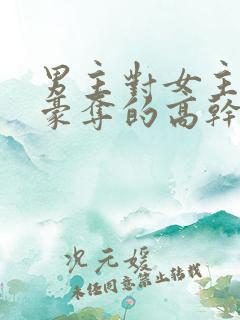 男主對女主
豪奪的高幹
沈元媛
未任同意禁止轉載